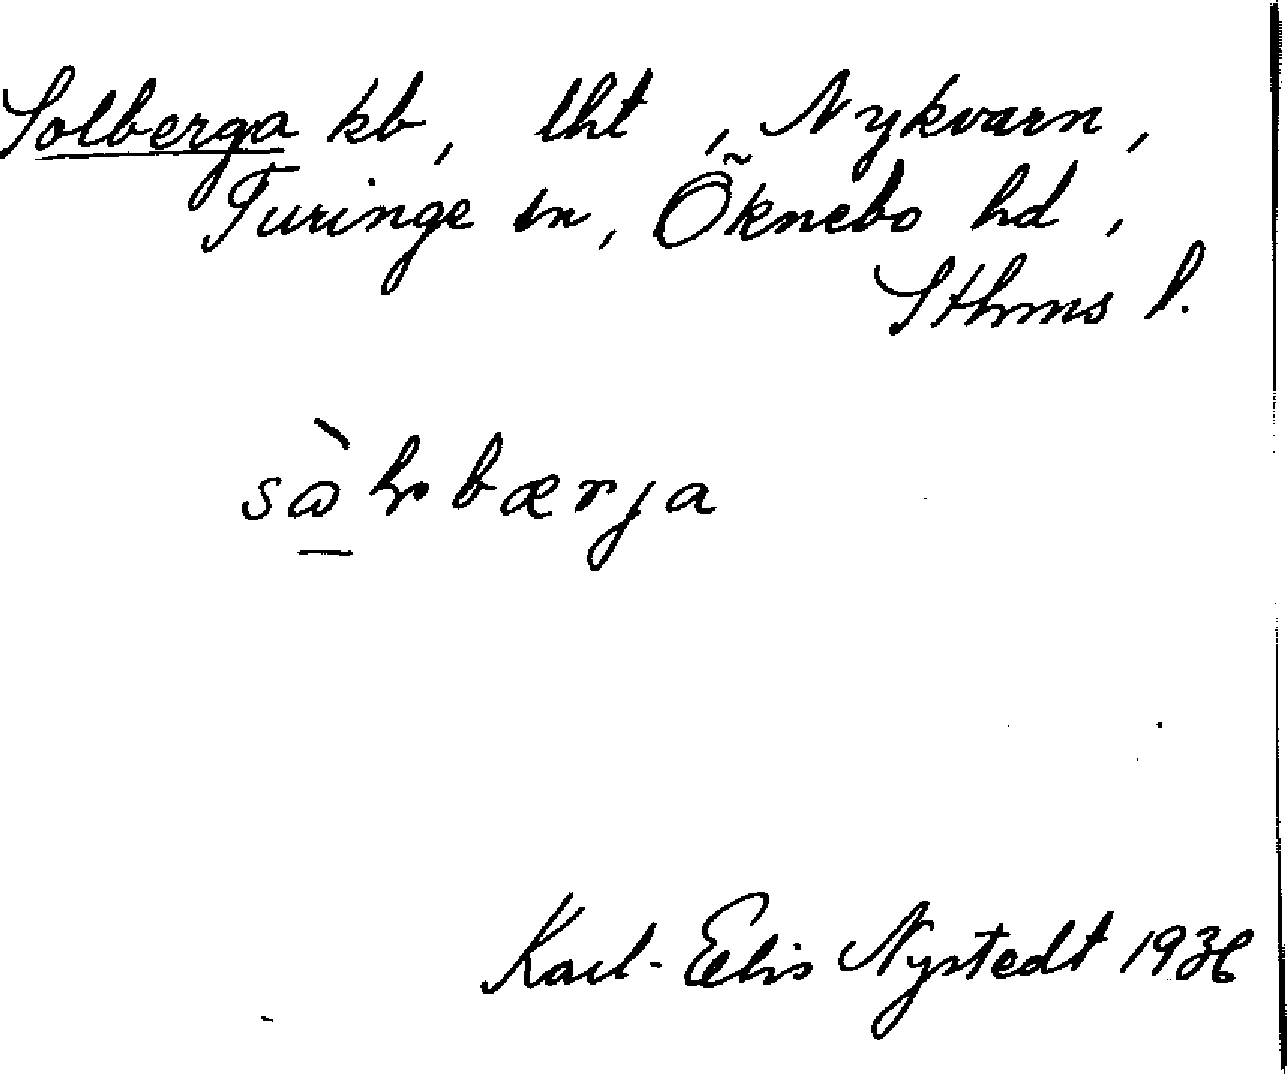 Solberga kb, lht, Nykvarn,
Turinge sn, Öknebo hd,
Sthms l.
Karl-Elis Nystedt 1936